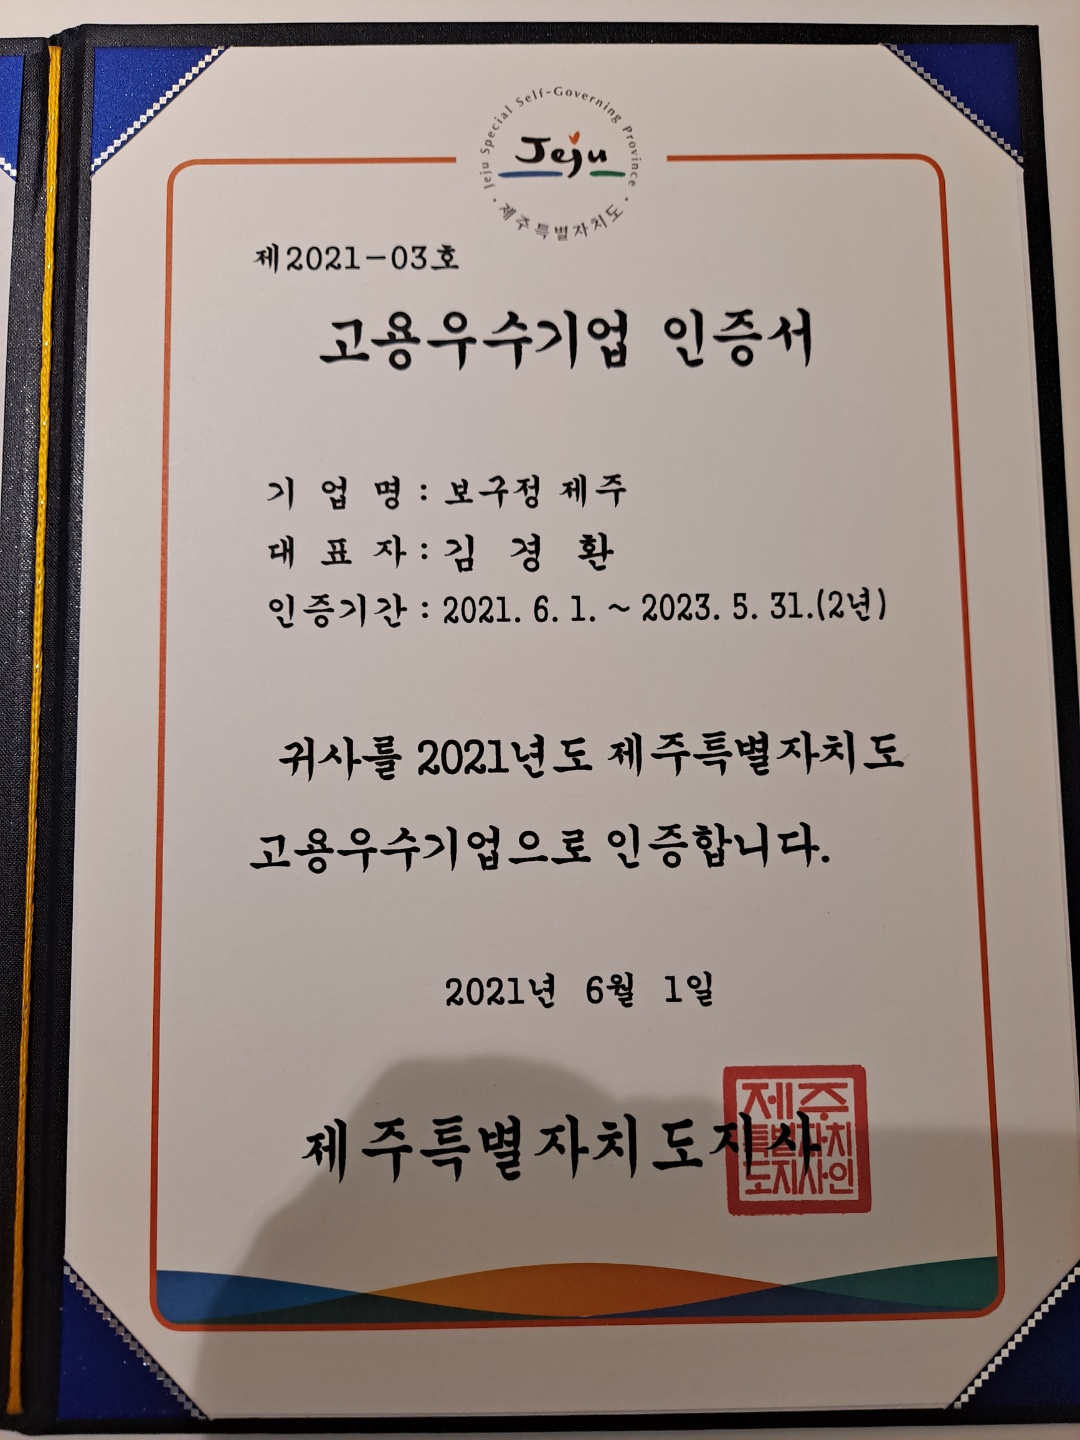 Jeju Special Self-Governing Province
Jeju
제주특별자치도
제2021-03호
고용우수기업 인증서
기 업 명 : 보구정 제주
대 표 자 : 김 경 환
인증기간 : 2021. 6. 1. ~ 2023. 5. 31.(2년)
귀사를 2021년도 제주특별자치도
고용우수기업으로 인증합니다.
2021년 6월 1일
제주특별자치도지사
제주
특별자치
도지사인